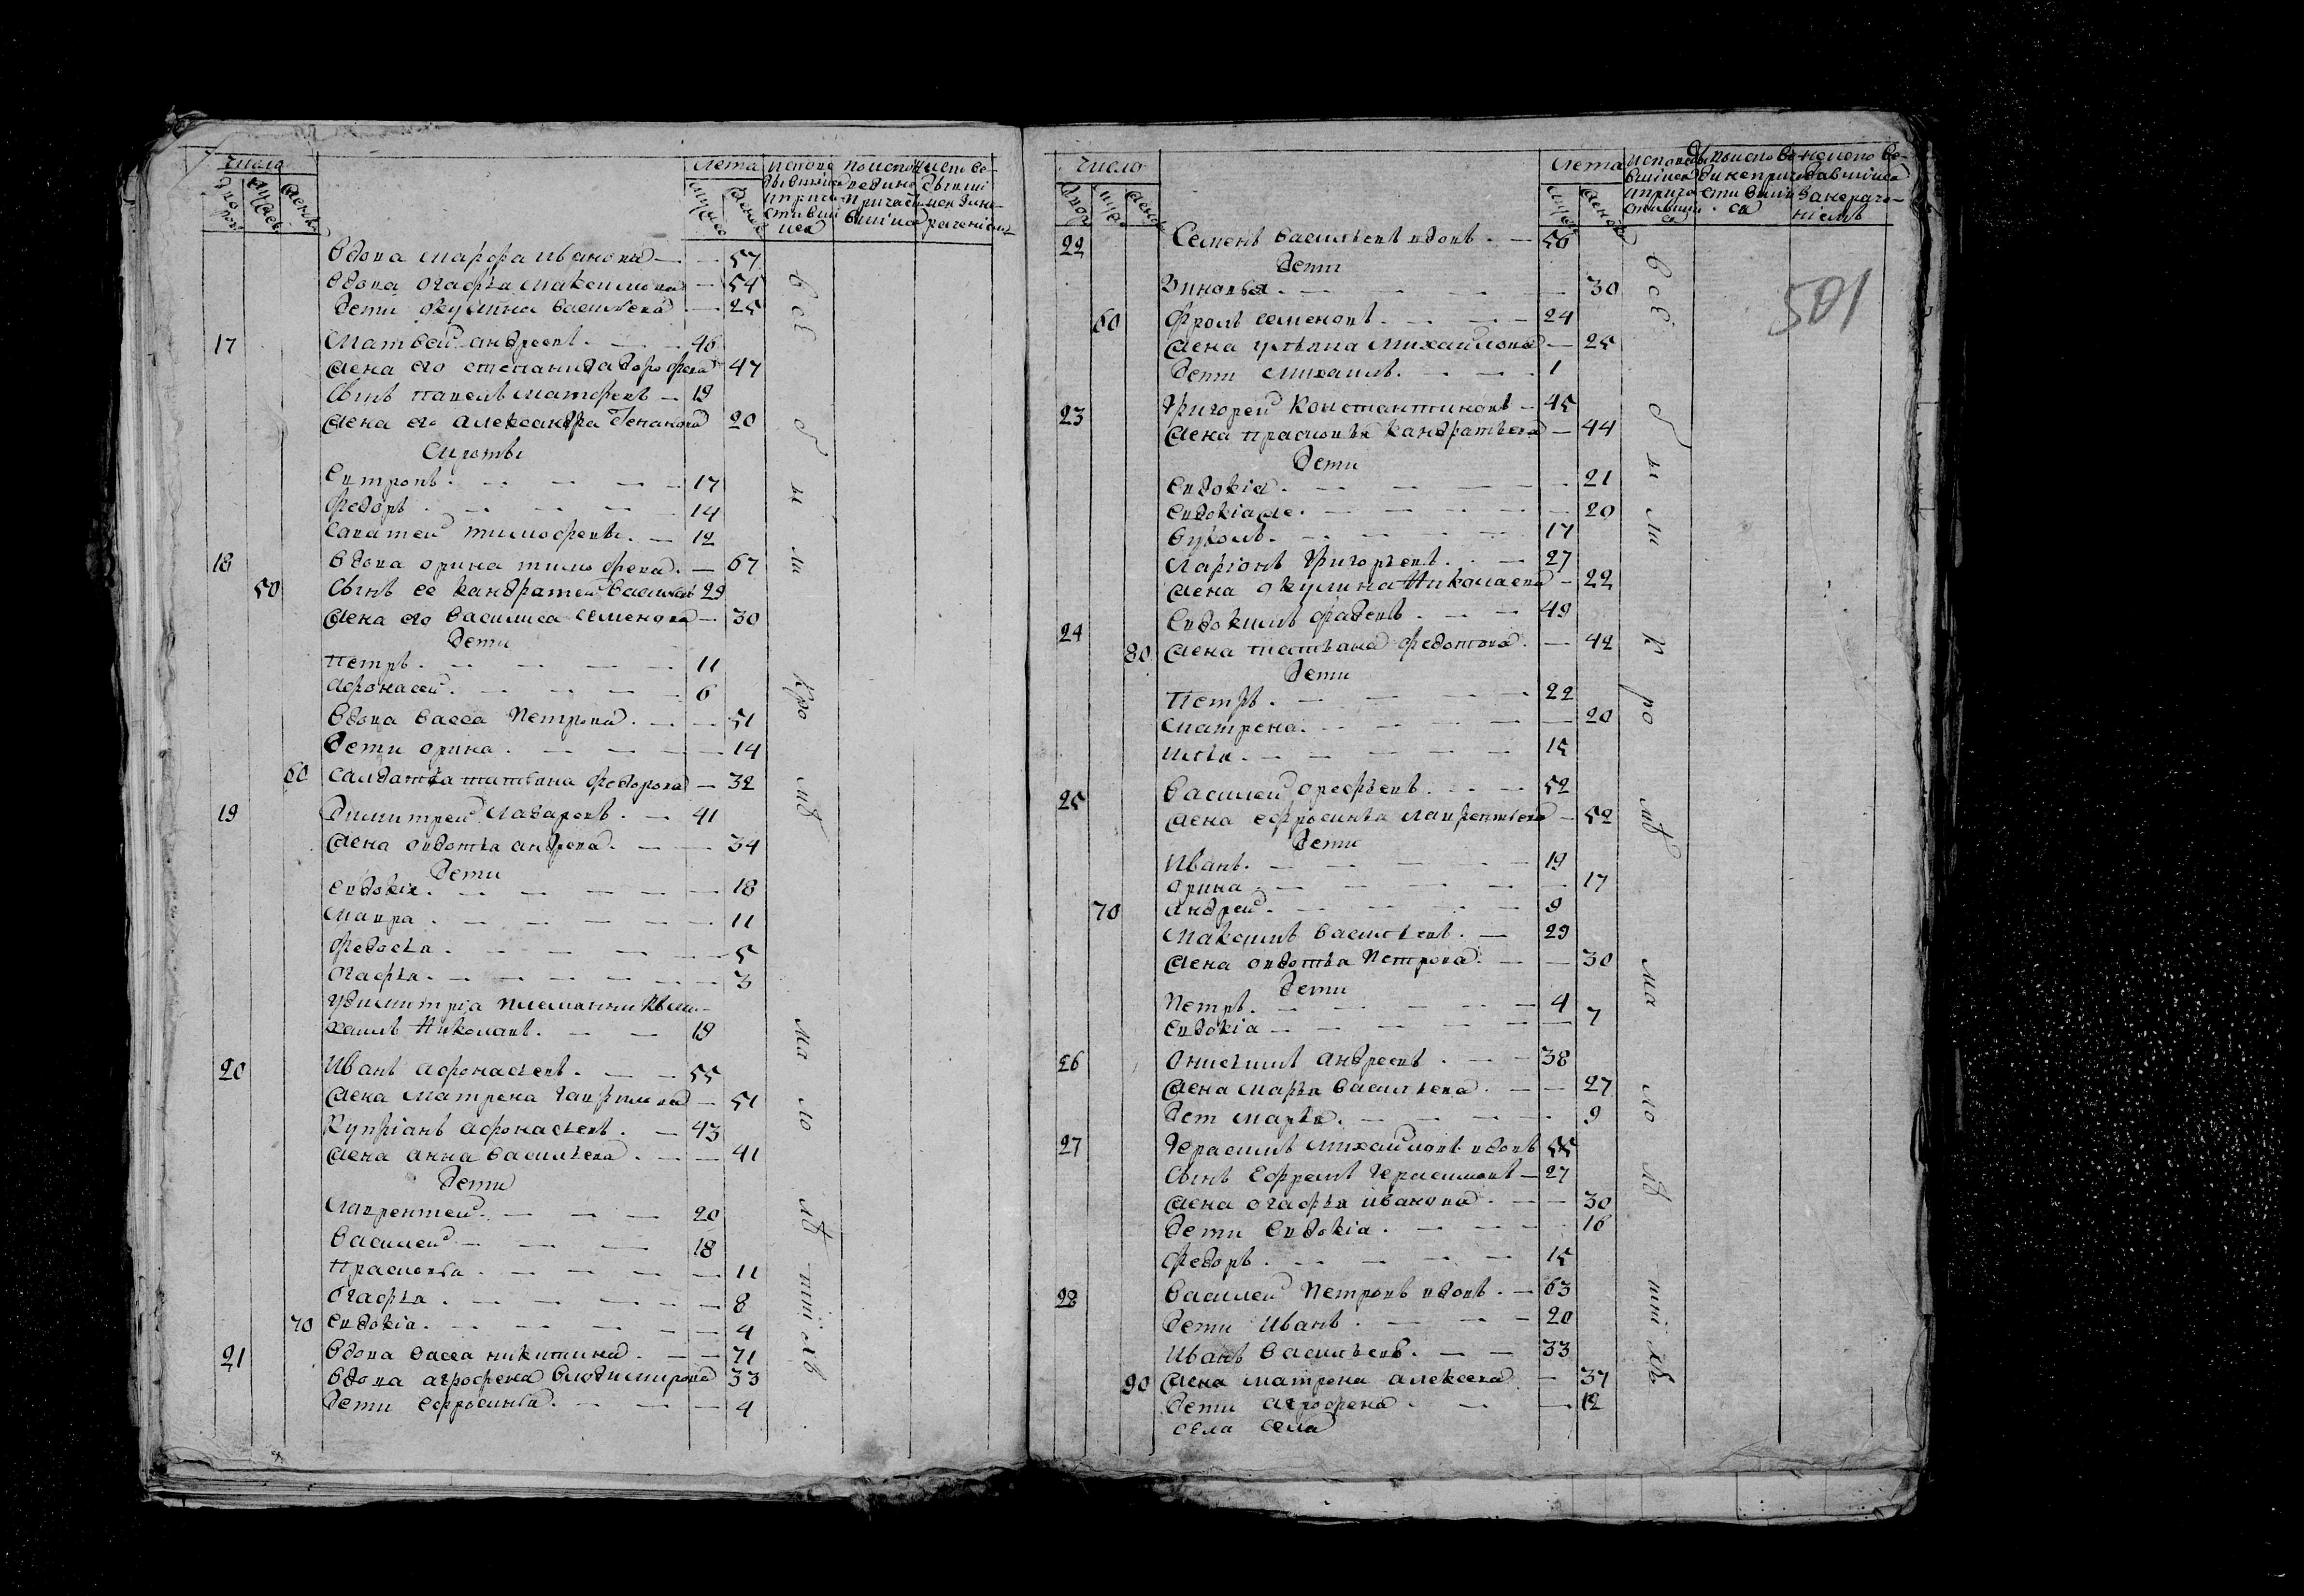 число
лета
вдова марфа иванова — 57
вдова огафья максимова — 54
дети окулина васильева — 25
17 Матвей андреевъ — 46
жена его степанида дорофеева 47
сынъ павелъ матфеевъ — 19
жена его александра 20
Сироты
Євтропъ — 17
Федоръ — 14
Саватей тимофеевы — 12
18 вдова орина тимофеева — 67
50 сынъ ее кандратей васильевъ 29
жена его василиса семенова — 30
дети
Петръ — 11
афонасей — 6
вдова васса Петрова — 51
дети орина — 14
60 салдатка татьяна федорова — 32
19 Димитрей Лазаревъ — 41
жена овдотья андреева — 34
дети
Євдокія — 18
Мавра — 11
Федосья — 5
Огафья — 3
у димитрія племянникъ ми-
хаилъ Николаевъ — 19
20 Иванъ афонасьевъ — 55
жена матрена гаврилова — 51
Купріанъ афонасьевъ — 43
жена анна васильева — 41
дети
Лаврентей — 20
Василей — 18
Прасковья — 11
Огафья — 8
70 Євдокіа — 4
21 вдова васса никитина — 71
вдова агрофена влодимирова 33
дети єфросинья — 4
всѣ были кромѣ малолѣтнихъ
число
лета
501
22 Семенъ васильевъ вдовъ — 56
дети
Зиновья — 30
60 Фролъ семеновъ — 24
жена ульяна Михайлова — 25
дети михаилъ — 1
23 Григорей Константиновъ — 45
жена прасковья кандратьева — 44
дети
Євдокіа — 21
Євдокіа же — 20
Вуколъ — 17
Ларіонъ Григорьевъ — 27
жена окулина Николаева — 22
24 Євдокимъ фадеевъ — 49
80 жена татьяна федотова — 42
дети
Петръ — 22
матрена — 20
илья — 15
25 Василей орефьевъ — 52
жена єфросинья лаврентьева — 52
дети
Иванъ — 19
орина — 17
70 андрей — 9
Максимъ васильевъ — 29
жена овдотья Петрова — 30
дети
Петръ — 4
Євдокіа — 7
26 Онисимъ андреевъ — 38
жена марья васильева — 27
дет марья — 9
27 Герасимъ михайловъ вдовъ 55
сынъ Єфремъ Герасимовъ — 27
жена огафья иванова — 30
дети Євдокіа — 16
федоръ — 15
28 Василей Петровъ вдовъ — 63
дети Иванъ — 20
Иванъ васильевъ — 33
90 жена матрена алексеева — 37
дети агрофена — 12
села
всѣ были кромѣ малолѣтнихъ